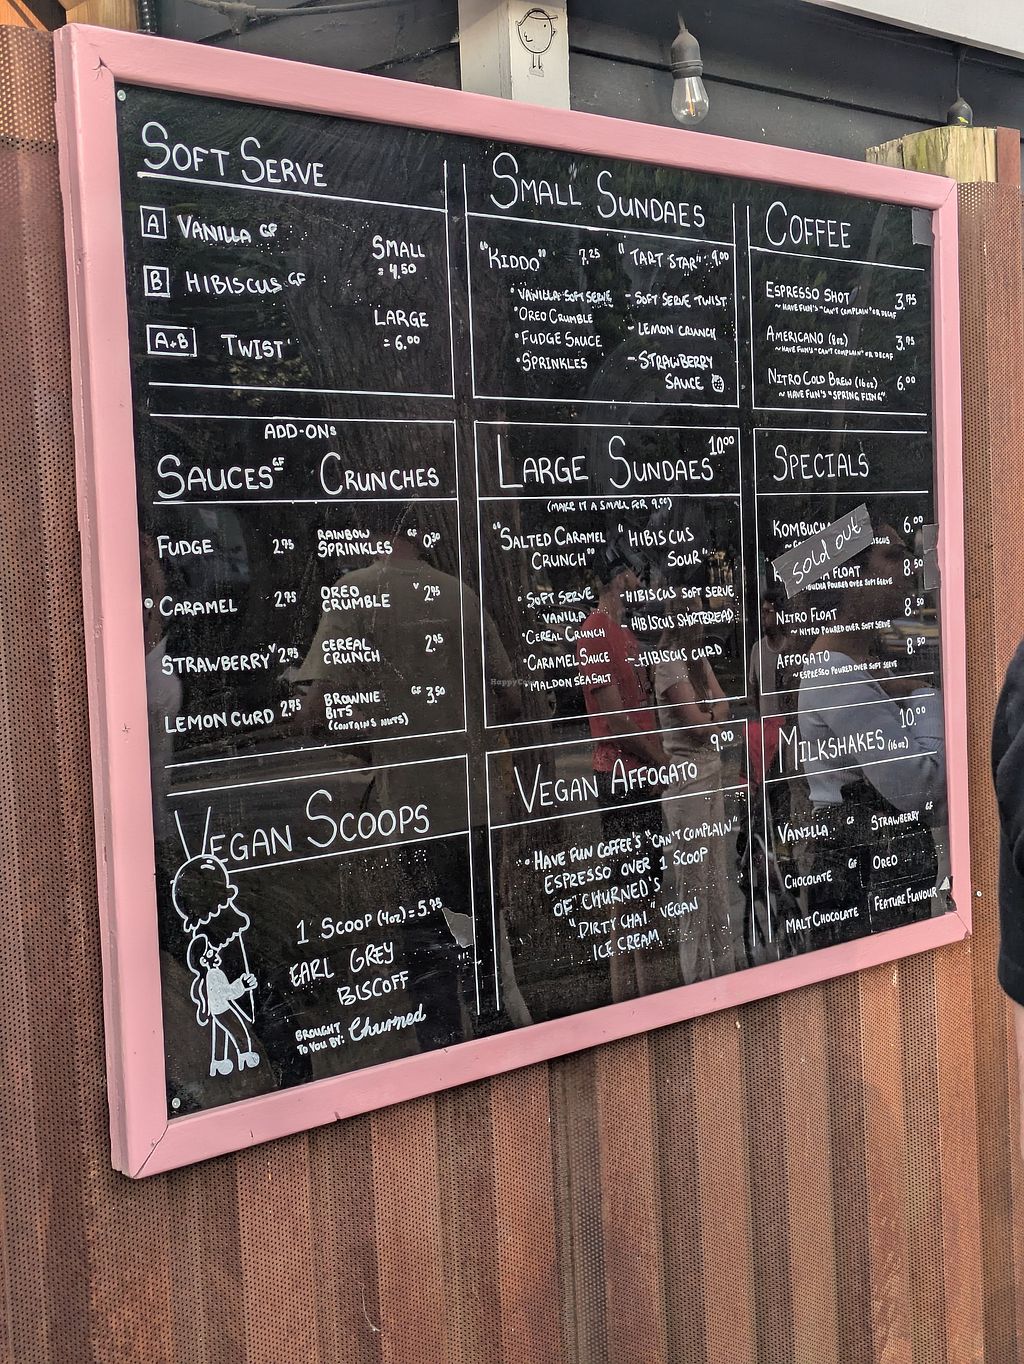 SOFT SERVE
A VANILLA GF
B HIBISCUS GF
A+B TWIST
SMALL
= 4.50
LARGE
= 6.00
SMALL SUNDAES
"KIDDO" 7.25
• VANILLA SOFT SERVE
• OREO CRUMBLE
• FUDGE SAUCE
• SPRINKLES
"TART STAR" 9.00
- SOFT SERVE TWIST
- LEMON CRUNCH
- STRAWBERRY
SAUCE
COFFEE
ESPRESSO SHOT 3.75
~ HAVE FUN'S "CAN'T COMPLAIN" OR DECAF
AMERICANO (8oz) 3.75
~ HAVE FUN'S "CAN'T COMPLAIN" OR DECAF
NITRO COLD BREW (16oz) 6.00
~ HAVE FUN'S "SPRING FLING"
ADD-ONS
SAUCES GF
FUDGE 2.75
CARAMEL 2.75
STRAWBERRY V 2.75
LEMON CURD 2.75
CRUNCHES
RAINBOW
SPRINKLES GF 0.30
OREO
CRUMBLE V 2.95
CEREAL
CRUNCH 2.95
BROWNIE
BITS GF 3.50
(CONTAINS NUTS)
LARGE SUNDAES 10.00
(MAKE IT A SMALL FOR 9.00)
"SALTED CARAMEL
CRUNCH"
• SOFT SERVE
VANILLA
• CEREAL CRUNCH
• CARAMEL SAUCE
• MALDON SEA SALT
"HIBISCUS
SOUR"
- HIBISCUS SOFT SERVE
- HIBISCUS SHORTBREAD
- HIBISCUS CURD
SPECIALS
KOMBUCHA 6.00
sold out
FLOAT 8.50
POURED OVER SOFT SERVE
NITRO FLOAT 8.50
~ NITRO POURED OVER SOFT SERVE
AFFOGATO 8.50
~ ESPRESSO POURED OVER SOFT SERVE
VEGAN SCOOPS
1 SCOOP (4oz) = 5.75
EARL GREY
BISCOFF
BROUGHT
TO YOU BY: Churned
VEGAN AFFOGATO 9.00
• HAVE FUN COFFEE'S "CAN'T COMPLAIN"
ESPRESSO OVER 1 SCOOP
OF CHURNED'S
"DIRTY CHAI" VEGAN
ICE CREAM
MILKSHAKES (16oz) 10.00
VANILLA GF
CHOCOLATE GF
MALT CHOCOLATE
STRAWBERRY GF
OREO
FEATURE FLAVOUR